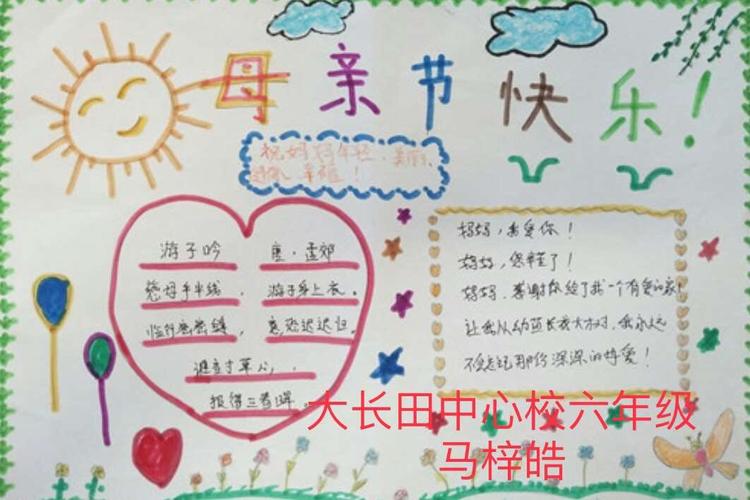 母亲节快乐！
祝妈妈年轻、美丽、
幸福！
游子吟 唐·孟郊
慈母手中线，游子身上衣。
临行密密缝，意恐迟迟归。
谁言寸草心，
报得三春晖。
妈妈，我爱你！
妈妈，您辛苦了！
妈妈，感谢你给了我一个有爱的家！
让我从幼苗长成大树，我永远
不会忘记那份深深的母爱！
大长田中心校六年级
马梓皓